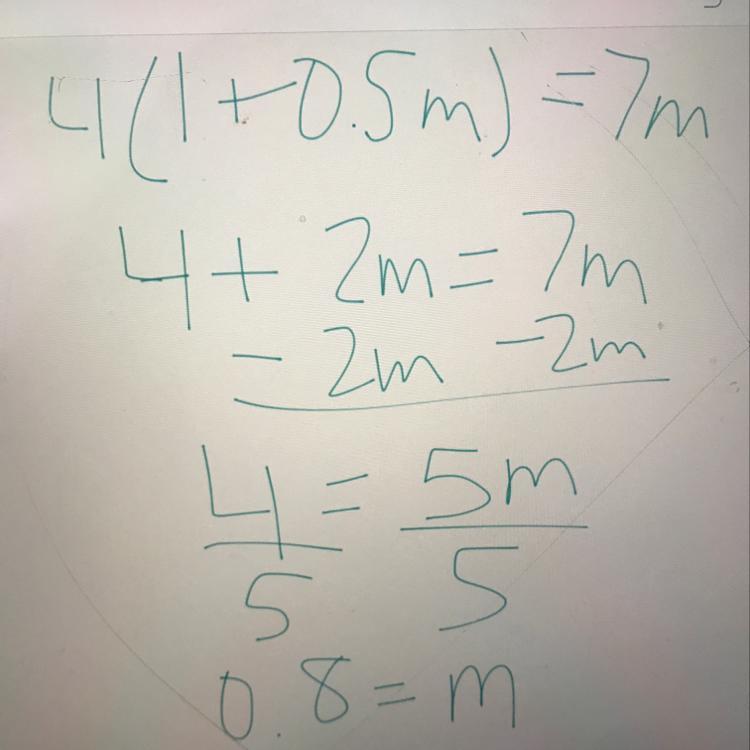 4(1+0.5m)=7m
4+2m=7m
-2m -2m
4=5m
5 5
0.8=m